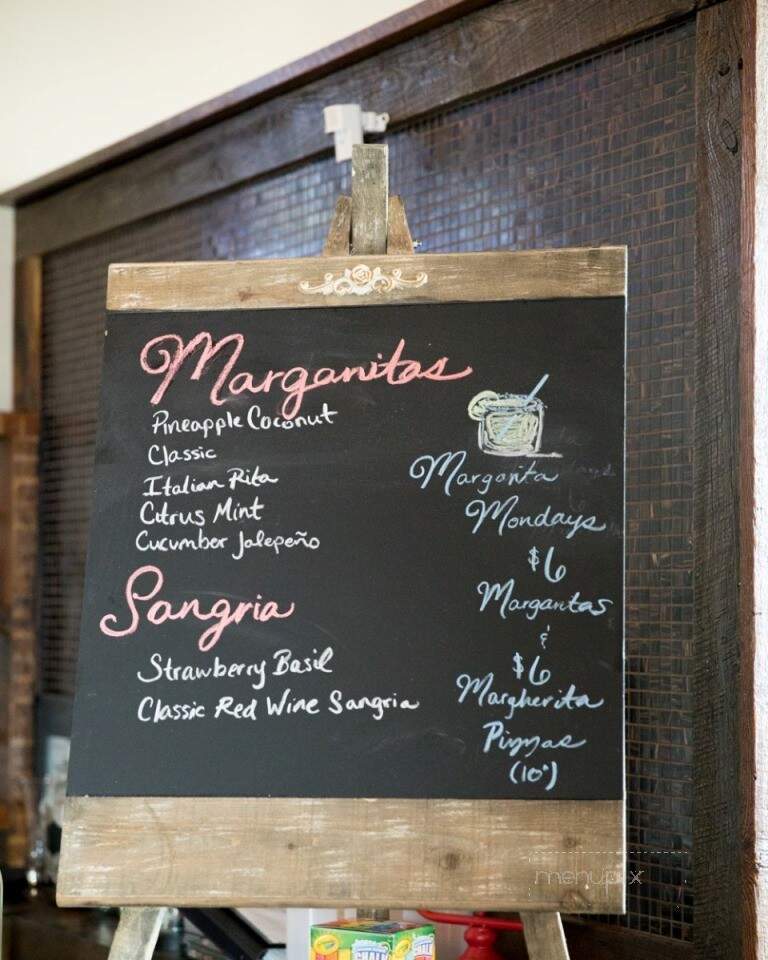 Margaritas
Pineapple Coconut
Classic
Italian Rita
Citrus Mint
Cucumber Jalepeño
Sangria
Strawberry Basil
Classic Red Wine Sangria
Margarita
Mondays
$6
Margaritas
&
$6
Margherita
Pizzas
(10")
menupix
Crayola
CHALK